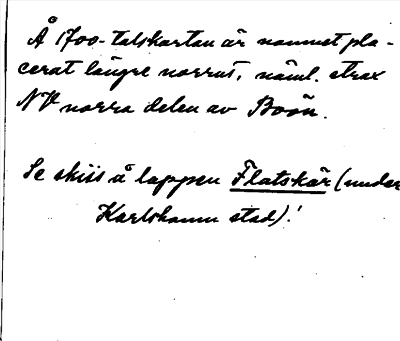 Å 1700-talskartan är namnet pla-
cerat längre norrut, näml. strax
NV norra delen av Boön.
Se skiss å lappen Flatskär (under
Karlshamn stad)!